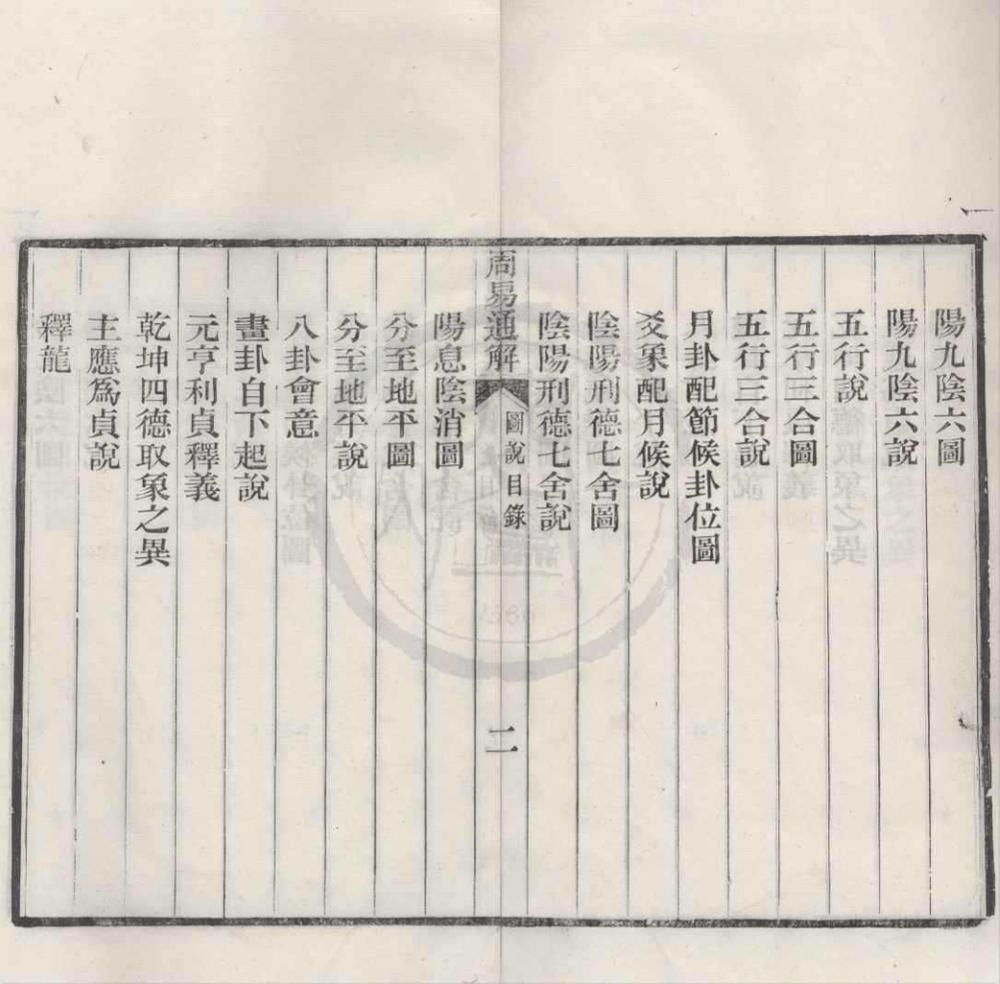 陽九陰六圖
陽九陰六說
五行說
五行三合圖
五行三合說
月卦配節候卦位圖
爻象配月候說
陰陽刑德七舍圖
陰陽刑德七舍說
周易通解 圖說目錄 二
陽息陰消圖
分至地平圖
分至地平說
八卦會意
畫卦自下起說
元亨利貞釋義
乾坤四德取象之異
主應爲貞說
釋龍
1366